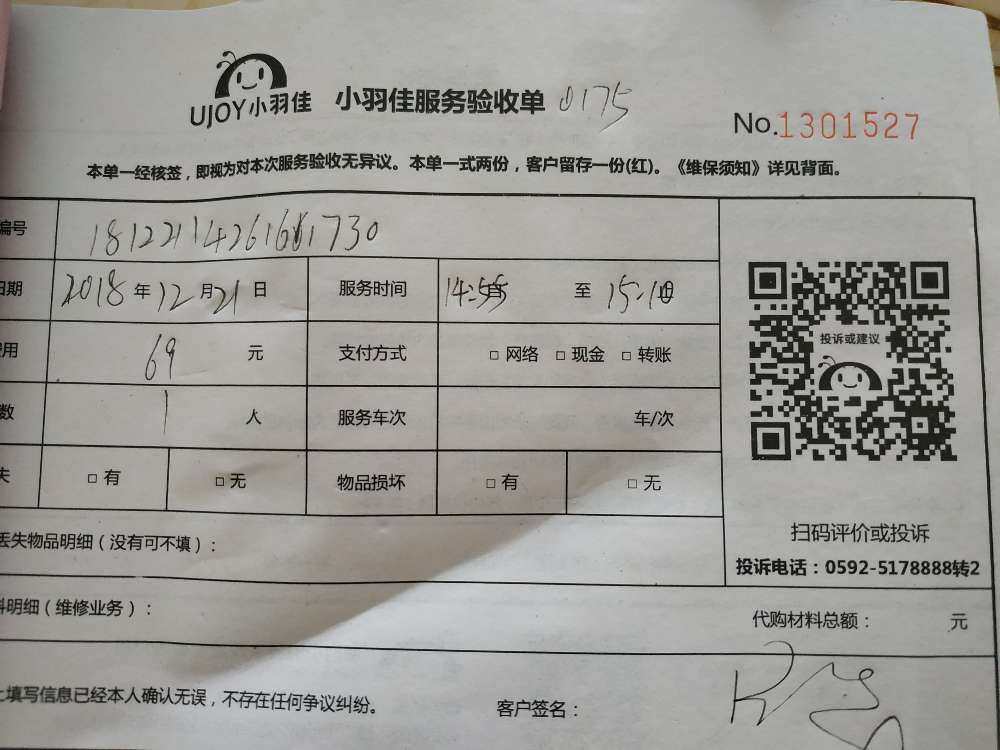 UJOY小羽佳 小羽佳服务验收单 0175
No.1301527
本单一经核签，即视为对本次服务验收无异议。本单一式两份，客户留存一份(红)。《维保须知》详见背面。
编号
日期 2018 年 12 月 21 日 服务时间 14:55 至 15:10
费用 69 元 支付方式 □ 网络 □ 现金 □ 转账
数 1 人 服务车次 车/次
失 □ 有 □ 无 物品损坏 □ 有 □ 无
投诉或建议
扫码评价或投诉
投诉电话：0592-5178888转2
丢失物品明细（没有可不填）：
料明细（维修业务）： 代购材料总额： 元
上填写信息已经本人确认无误，不存在任何争议纠纷。 客户签名：